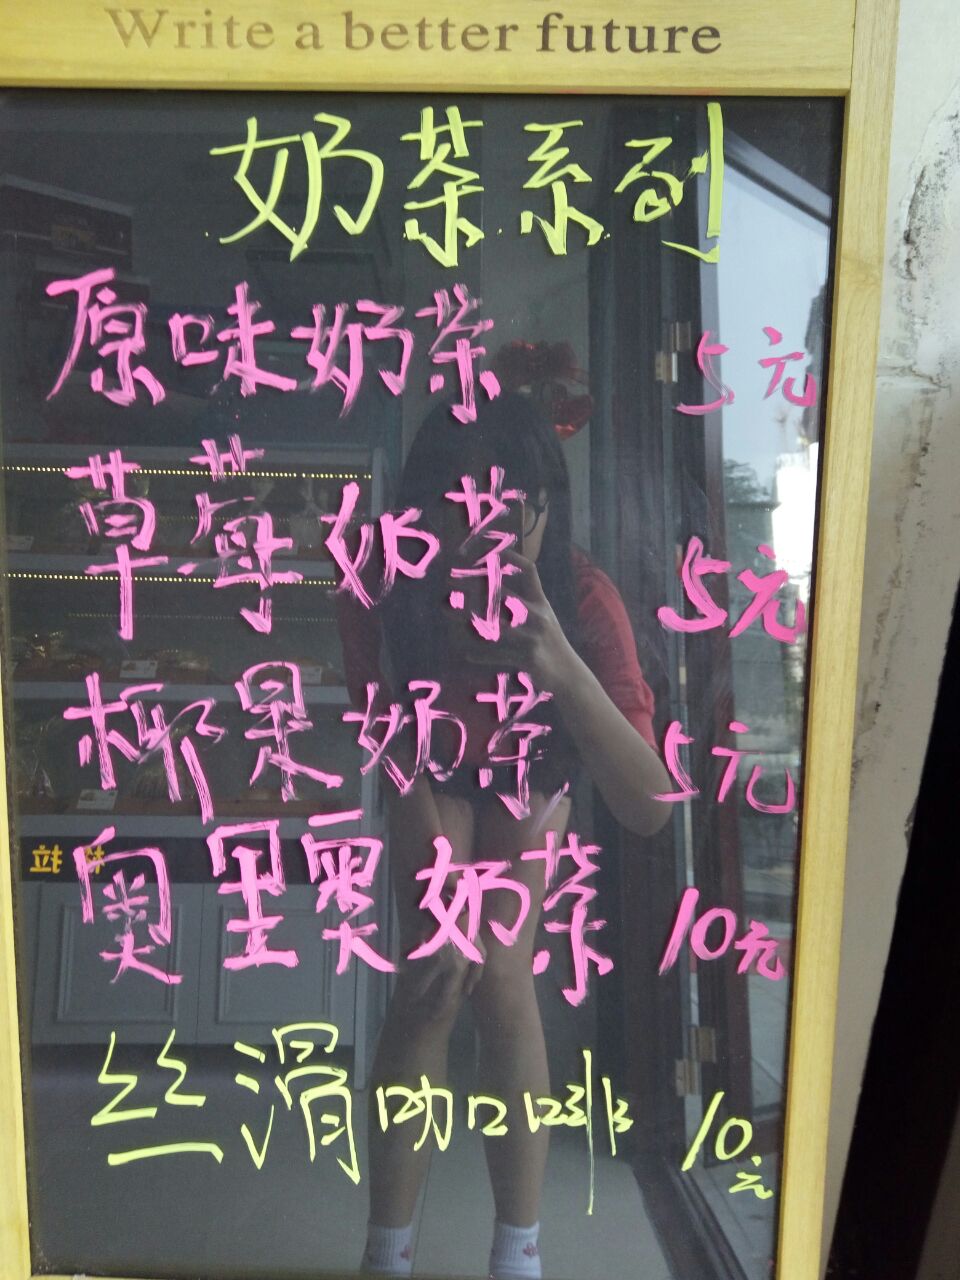 Write a better future
奶茶系列
原味奶茶 5元
草莓奶茶 5元
椰果奶茶 5元
奥里奥奶茶 10元
丝滑咖啡 10元